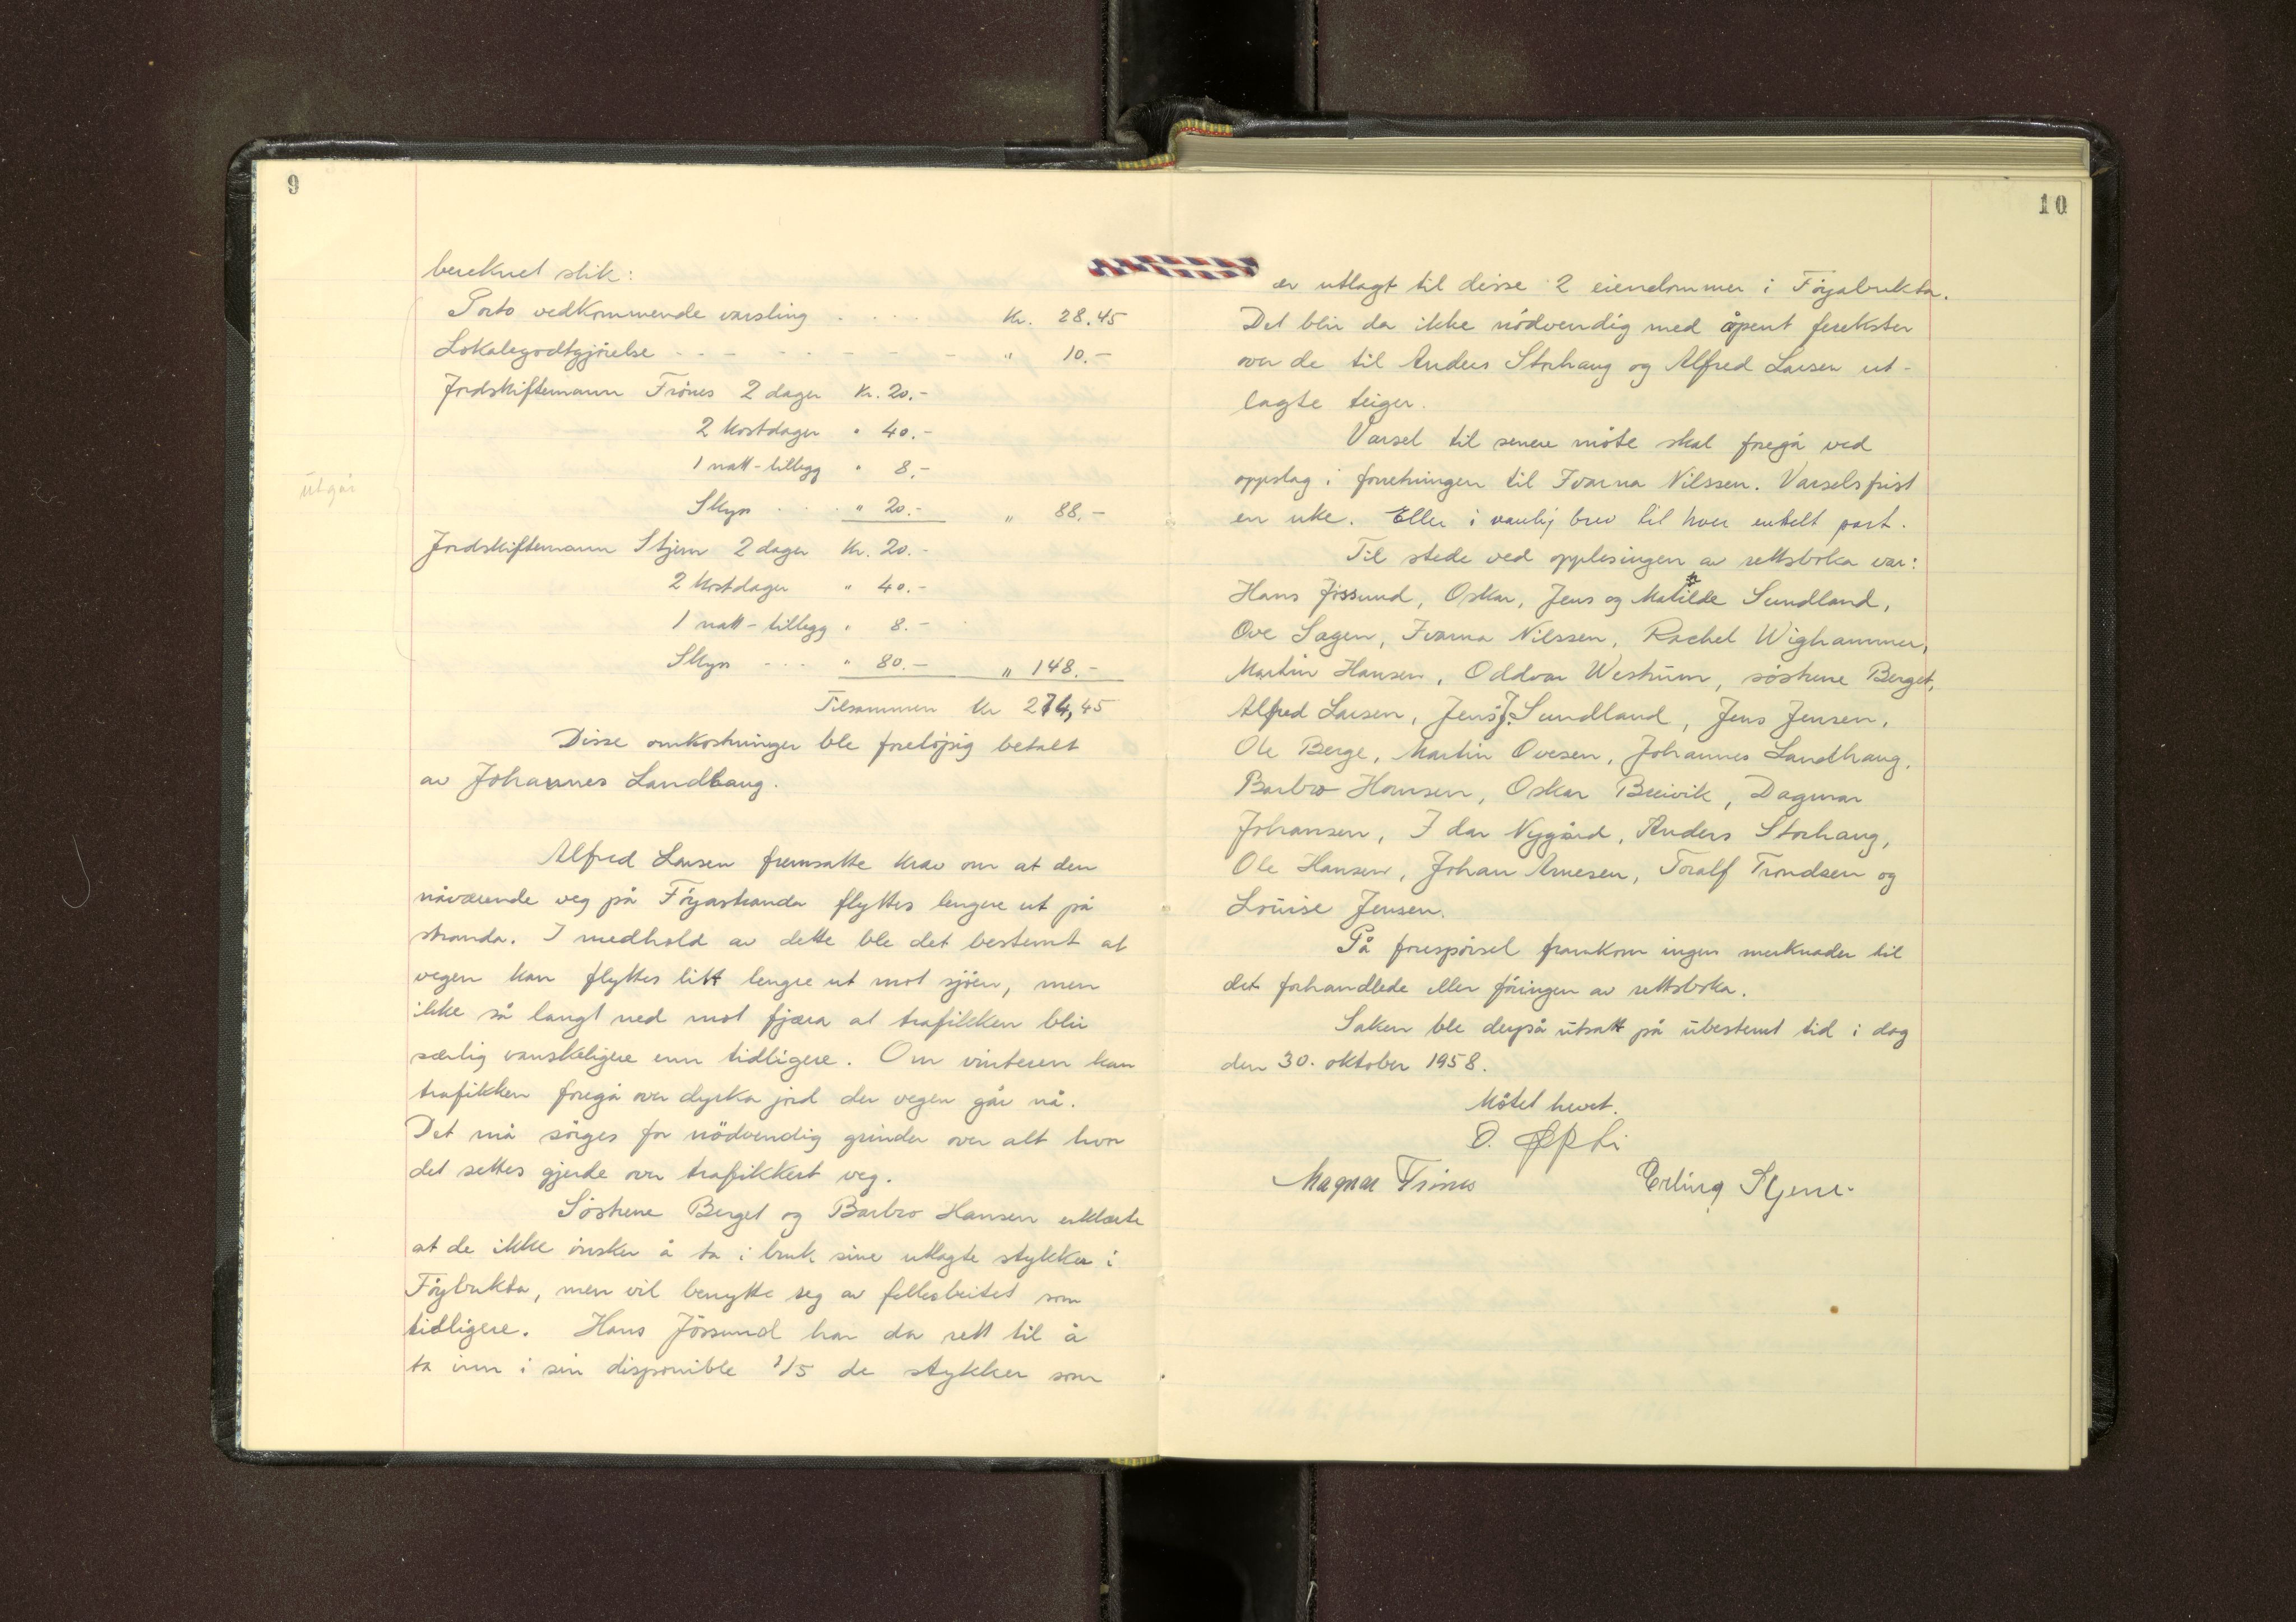 9
bereknet slik:
Porto vedkommende varsling . . . . Kr. 28.45
Lokalegodtgjörelse - - - - - - - - " 10.-
Jordskiftemann Frönes 2 dager Kr. 20.-
2 kostdager " 40.-
1 natt-tillegg " 8.-
utgår
Skyss . . . " 20.- " 88.-
Jordskiftemann Stjern 2 dager Kr. 20.-
2 kostdager " 40.-
1 natt-tillegg " 8.-
Skyss - - - " 80.- " 148.-
Tilsammen Kr 274,45
Disse omkostninger ble foreløpig betalt
av Johannes Landhaug.
Alfred Larsen fremsatte krav om at den
nåværende veg på Föyastranda flyttes lengere ut på
stranda. I medhold av dette ble det bestemt at
vegen kan flyttes litt lengre ut mot sjöen, men
ikke så langt ned mot fjæra at trafikken blir
særlig vanskeligere enn tidligere. Om vinteren kan
trafikken foregå over dyrka jord der vegen går nå.
Det må sörges for nödvendig grinder over alt hvor
det settes gjerde over trafikkert veg.
Söstrene Berget og Barbro Hansen erklærte
at de ikke önsker å ta i bruk sine utlagte stykker i
Föybukta, men vil benytte seg av fellesbeitet som
tidligere. Hans Jössund har da rett til å
ta inn i sin disponible 1/5 de stykker som
10
er utlagt til disse 2 eiendommer i Föyabukta.
Det blir da ikke nödvendig med åpent ferekster
over de til Anders Storhaug og Alfred Larsen ut-
lagte teiger.
Varsel til senere möte skal foregå ved
oppslag i forretningen til Ivarna Nilssen. Varselsfrist
en uke. Eller i vanlig brev til hver enkelt part.
Til stede ved opplesingen av rettsboka var:
Hans Jössund, Oskar, Jens og Matilde Sundland,
Ove Sagen, Ivarna Nilssen, Rachel Wighammer,
Martin Hansen, Oddvar Westrum, söstrene Berget,
Alfred Larsen, Jens J. Sundland, Jens Jensen,
Ole Berge, Martin Ovesen, Johannes Landhaug,
Barbro Hansen, Oskar Breivik, Dagmar
Johansen, Idar Nygård, Anders Storhaug,
Ole Hansen, Johan Arnesen, Toralf Trondsen og
Louise Jensen.
På forespörsel framkom ingen merknader til
det forhandlede eller föringen av rettsboka.
Saken ble derpå utsatt på ubestemt tid i dag
den 30. oktober 1958.
Mötet hevet.
O.
Magnar Frönes Erling Stjern